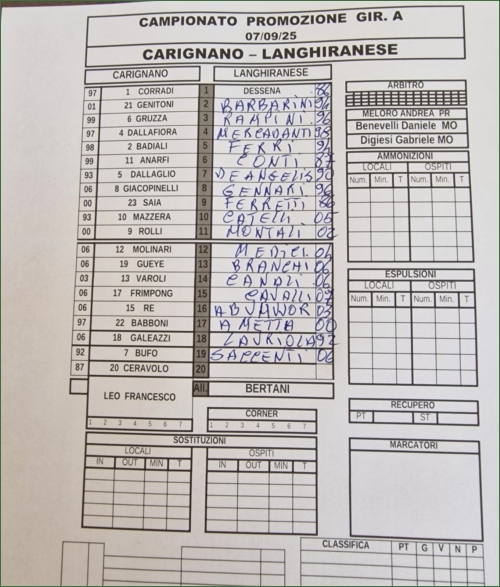 CAMPIONATO PROMOZIONE GIR. A
07/09/25
CARIGNANO – LANGHIRANESE
CARIGNANO LANGHIRANESE
97 1 CORRADI 1 DESSENA 86
01 21 GENITONI 2 BARBARINI 94
99 6 GRUZZA 3 RAMPINI 96
97 4 DALLAFIORA 4 MERCADANTI 98
98 2 BADIALI 5 FERRI 94
99 11 ANARFI 6 CONTI 87
93 5 DALLAGLIO 7 DEANGELIS 90
06 8 GIACOPINELLI 8 GENNARI 96
00 23 SAIA 9 FERRETTI 86
93 10 MAZZERA 10 CATELLI 05
00 9 ROLLI 11 MONTALI 02
06 12 MOLINARI 12 MEDICI 04
06 19 GUEYE 13 BRANCHI 06
03 13 VAROLI 14 CANALI 06
06 17 FRIMPONG 15 CAVALLI 07
06 15 RE 16 ABUMWOR 03
97 22 BABBONI 17 AMETTA 00
06 18 GALEAZZI 18 LAURIOLA 92
92 7 BUFO 19 SACCENTI 06
87 20 CERAVOLO 20
LEO FRANCESCO All. BERTANI
1 2 3 4 5 6 7 CORNER 1 2 3 4 5 6 7
SOSTITUZIONI
LOCALI OSPITI
IN OUT MIN T IN OUT MIN T
ARBITRO
MELORO ANDREA PR
Benevelli Daniele MO
Digiesi Gabriele MO
AMMONIZIONI
LOCALI OSPITI
Num. Min. T Num. Min. T
ESPULSIONI
LOCALI OSPITI
Num. Min. T Num. Min. T
RECUPERO
PT ST
MARCATORI
CLASSIFICA PT G V N P